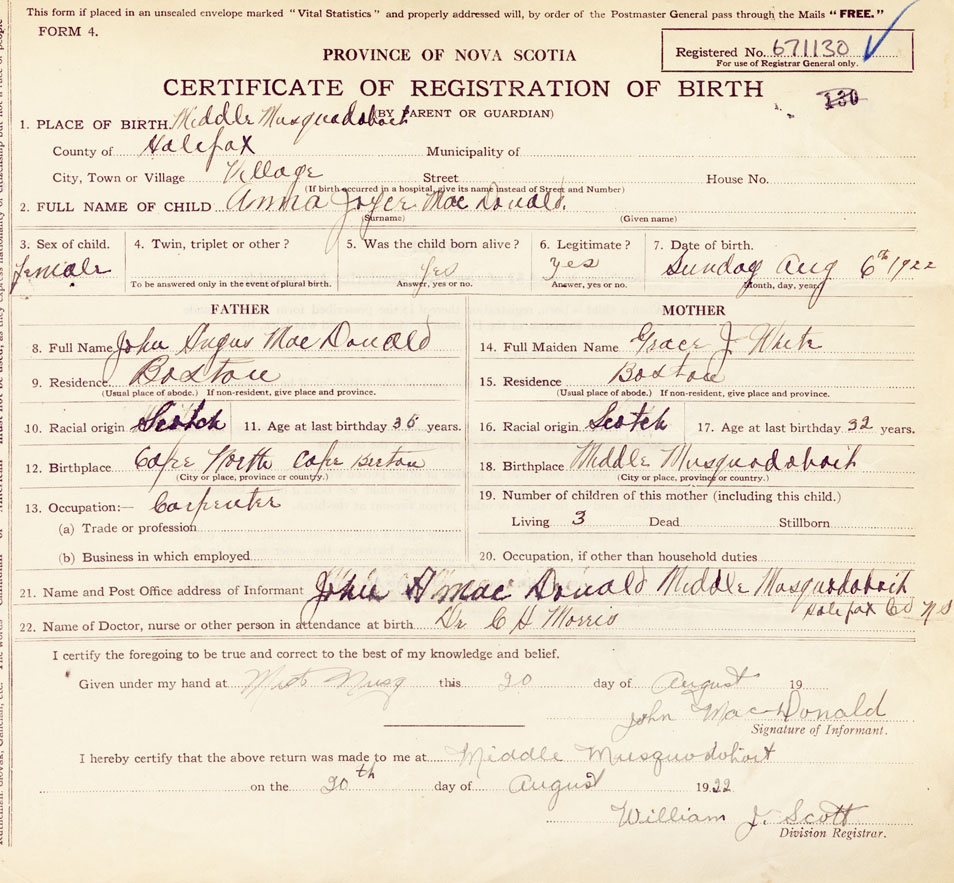 This form if placed in an unsealed envelope marked "Vital Statistics" and properly addressed will, by order of the Postmaster General pass through the Mails "FREE."
FORM 4.
Registered No. 671130
For use of Registrar General only.
PROVINCE OF NOVA SCOTIA
CERTIFICATE OF REGISTRATION OF BIRTH
130
(BY PARENT OR GUARDIAN)
1. PLACE OF BIRTH Middle Musquodoboit
County of Halifax Municipality of
City, Town or Village Village Street House No.
(If birth occurred in a hospital, give its name instead of Street and Number)
2. FULL NAME OF CHILD Anna Joyce MacDonald.
(Surname) (Given name)
3. Sex of child. 4. Twin, triplet or other? 5. Was the child born alive? 6. Legitimate? 7. Date of birth.
female yes yes Sunday Aug 6th 1922
To be answered only in the event of plural birth. Answer, yes or no. Answer, yes or no. Month, day, year.
FATHER MOTHER
8. Full Name John Angus MacDonald 14. Full Maiden Name Grace J White
9. Residence Boston 15. Residence Boston
(Usual place of abode.) If non-resident, give place and province. (Usual place of abode.) If non-resident, give place and province.
10. Racial origin Scotch 11. Age at last birthday years. 16. Racial origin Scotch 17. Age at last birthday 32 years.
12. Birthplace Cape North Cape Breton 18. Birthplace Middle Musquodoboit
(City or place, province or country.) (City or place, province or country.)
13. Occupation:— Carpenter 19. Number of children of this mother (including this child.)
(a) Trade or profession Living 3 Dead Stillborn
(b) Business in which employed 20. Occupation, if other than household duties
21. Name and Post Office address of Informant John A MacDonald Middle Musquodoboit
Halifax Co N S
22. Name of Doctor, nurse or other person in attendance at birth Dr C H Morris
I certify the foregoing to be true and correct to the best of my knowledge and belief.
Given under my hand at Musq this 20 day of August 19
John MacDonald
Signature of Informant.
I hereby certify that the above return was made to me at Middle Musquodoboit
on the 20th day of August 1922
William J. Scott
Division Registrar.